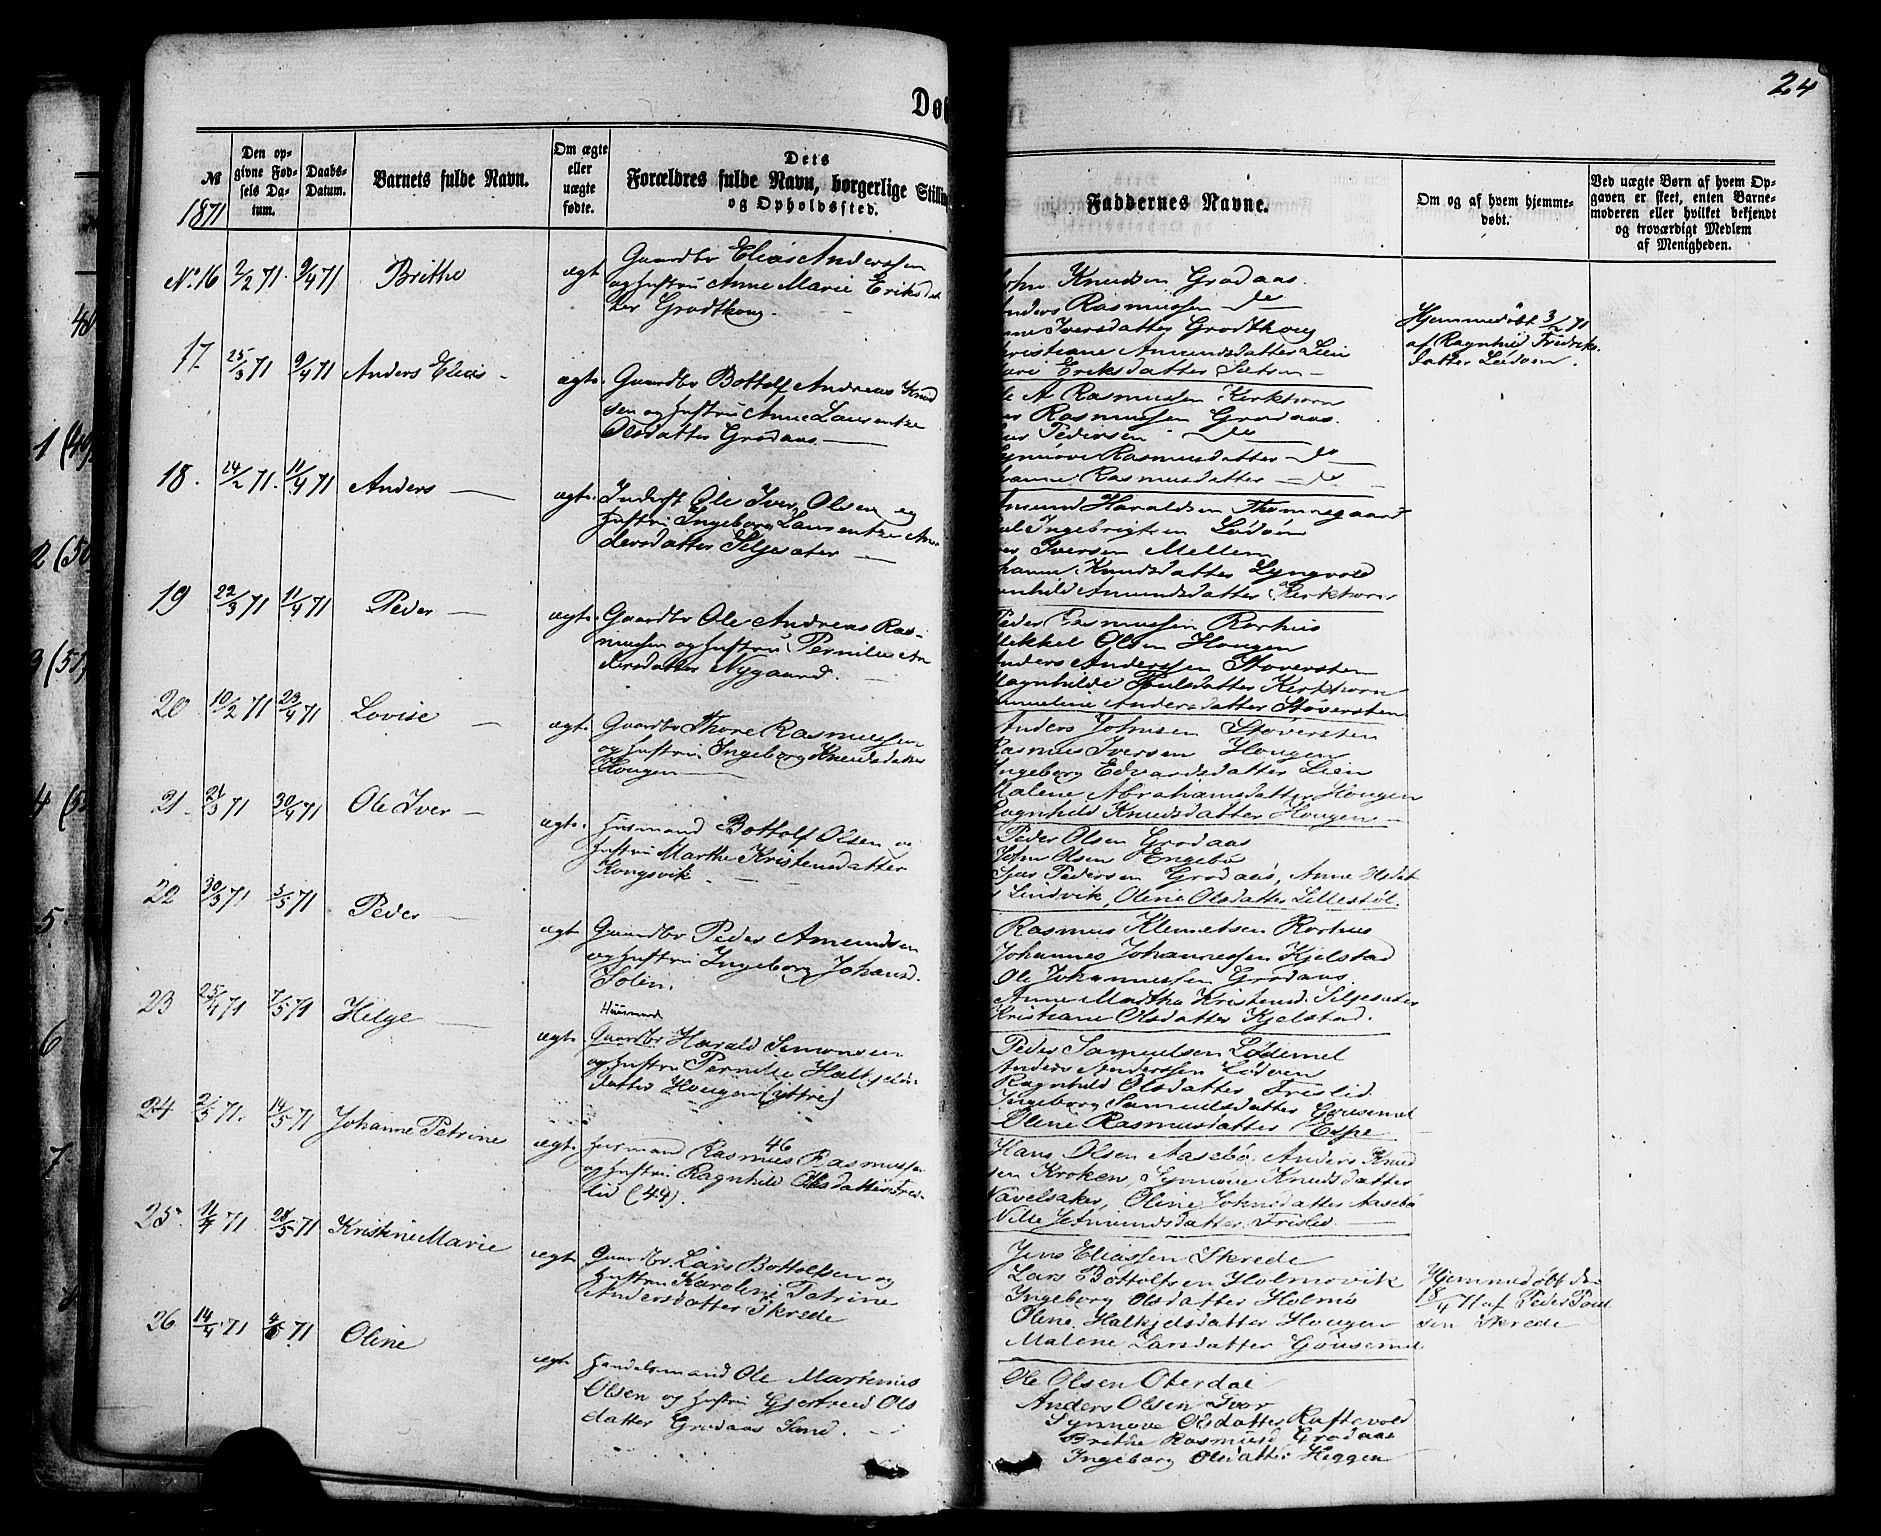 24
Dø
№
1871
Den op-
givne Fød-
sels Da-
tum.
Daabs-
Datum.
Barnets fulde Navn.
Om ægte
eller
uægte
fødte.
Dets
Forældres fulde Navn, borgerlige Stillin
og Opholdssted.
Faddernes Navne.
Om og af hvem hjemme-
døbt.
Ved uægte Børn af hvem Op-
gaven er skeet, enten Barne-
moderen eller hvilket bekjendt
og troværdigt Medlem
af Menigheden.
No. 16 2/2 71. 9/4 71 Brithe
ægt Gaardbr Elias Anderssen
og hustru Anne Marie Eriksdat
ter Grodthoug.
John Knudsen Grodaas.
Anders Rasmussen do
Iversdatter Grodthoug
Kristiane Amundsdatter Lien
Eriksdatter Sætren
Hjemmedøbt 3/2 71
af Ragnhild Fredriks-
datter Lødøen.
17. 25/3 71 9/4 71 Anders Elias
ægte. Gaardbr Bottolf Andreas Knud
sen og hustru Anne Laurentze
Olsdatter Grodaas.
Ole A Rasmussen Kirkhorn
Rasmussen Grodaas.
Pedersen do
Synnøve Rasmusdatter do
Rasmusdatter do
18. 24/2 71. 11/4 71 Anders
ægte. Inderst Ole Iver Olsen og
hustru Ingeborg Laurentze An
dersdatter Siljesæter
Amund Haraldsen Thomasgaard
Ingebrigtsen Lødøen
Iversen Mellem
Knudsdatter Lyngvold
Amundsdatter Kirkhorn
19 22/3 71 11/4 71 Peder
ægte. Gaardbr Ole Andreas Ras-
mussen og hustru Pernille An
dersdatter Nygaard.
Peder Rasmussen Rorhus
Mikkel Olsen Hougen
Anders Anderssen Stoversten
Magnhilde Poulsdatter Kirkhorn
Andersdatter Stoversten.
20 10/2 71 23/4 71 Lovise
ægte. Gaardbr Thore Rasmussen
og hustru Ingeborg Knudsdatter
Hougen
Anders Johnsen Stoversten
Rasmus Iversen Hougen
Ingeborg Edvardsdatter Lien
Malene Abrahamsdatter Hougen
Ragnhild Knudsdatter Hougen
21. 21/3 71 30/4 71 Ole Iver
ægte. Husmand Bottolf Olsen og
hustru Marthe Kristensdatter
Kongsvik.
Peder Olsen Grodaas
John Olsen Engebø
Pedersen Grodaas, Anne Olsdat
Lindvik, Oline Olsdatter Lillestøl.
22 30/3 71 3/5 71 Peder
ægt. Gaardbr Peder Amundsen
og hustru Ingeborg Johansd.
Solin.
Rasmus Klemetsen Rorhus
Johannes Johannessen Kjelstad
Ole Johannessen Grodaas
Anne Martha Kristensd. Siljesæter
Kristiane Olsdatter Kjelstad.
23 25/4 71 7/5 71 Helge
Huusmand
ægt. Gaardbr Harald Simonsen
og hustru Pernille Halkjels-
datter Hougen (yttre)
Peder Samuelsen Lødemel
Anders Anderssen Lødøen
Ragnhild Olsdatter Frislid.
Ingeborg Samuelsdatter Gousemel
Oline Rasmusdatter Espe
24 2/5 71. 14/5 71 Johanne Petrine
46
ægt. Husmand Rasmus Rasmussen
og hustru Ragnhild Olsdatter Fris-
lid (44).
Hans Olsen Aasebø. Anders Knud
sen Kroken, Synnøve Knudsdatter
Navelsaker, Oline Johnsdatter Aasebø
Nille J. Amundsdatter Frislid
25. 11/4 71 28/5 71 Kristine Marie
ægt. Gaardbr. Lars Bottolfsen og
hustru Karoline Petrine
Andersdatter Skrede
Jens Eliassen Skrede
Lars Bottolfsen Holmøvik
Ingeborg Olsdatter Holmø
Oline Halkjelsdatter Hougen
Malene Larsdatter Gousemel
Hjemmedøbt den
18/4 71 af Peder Poul
sen Skrede
26 14/4 71 4/6 71 Oline
ægt. Handelsmand Ole Martinus
Olsen og hustru Gjertrud Ols
datter Grodaas Sand.
Ole Olsen Oterdal
Anders Olsen Tvor
Synnøve Olsdatter Raftevold
Brithe Rasmusd Grodaas
Ingeborg Olsdatter Heggen
48
1 (49)
2 (50
3 (51)
4 (5
5.
6
7
8